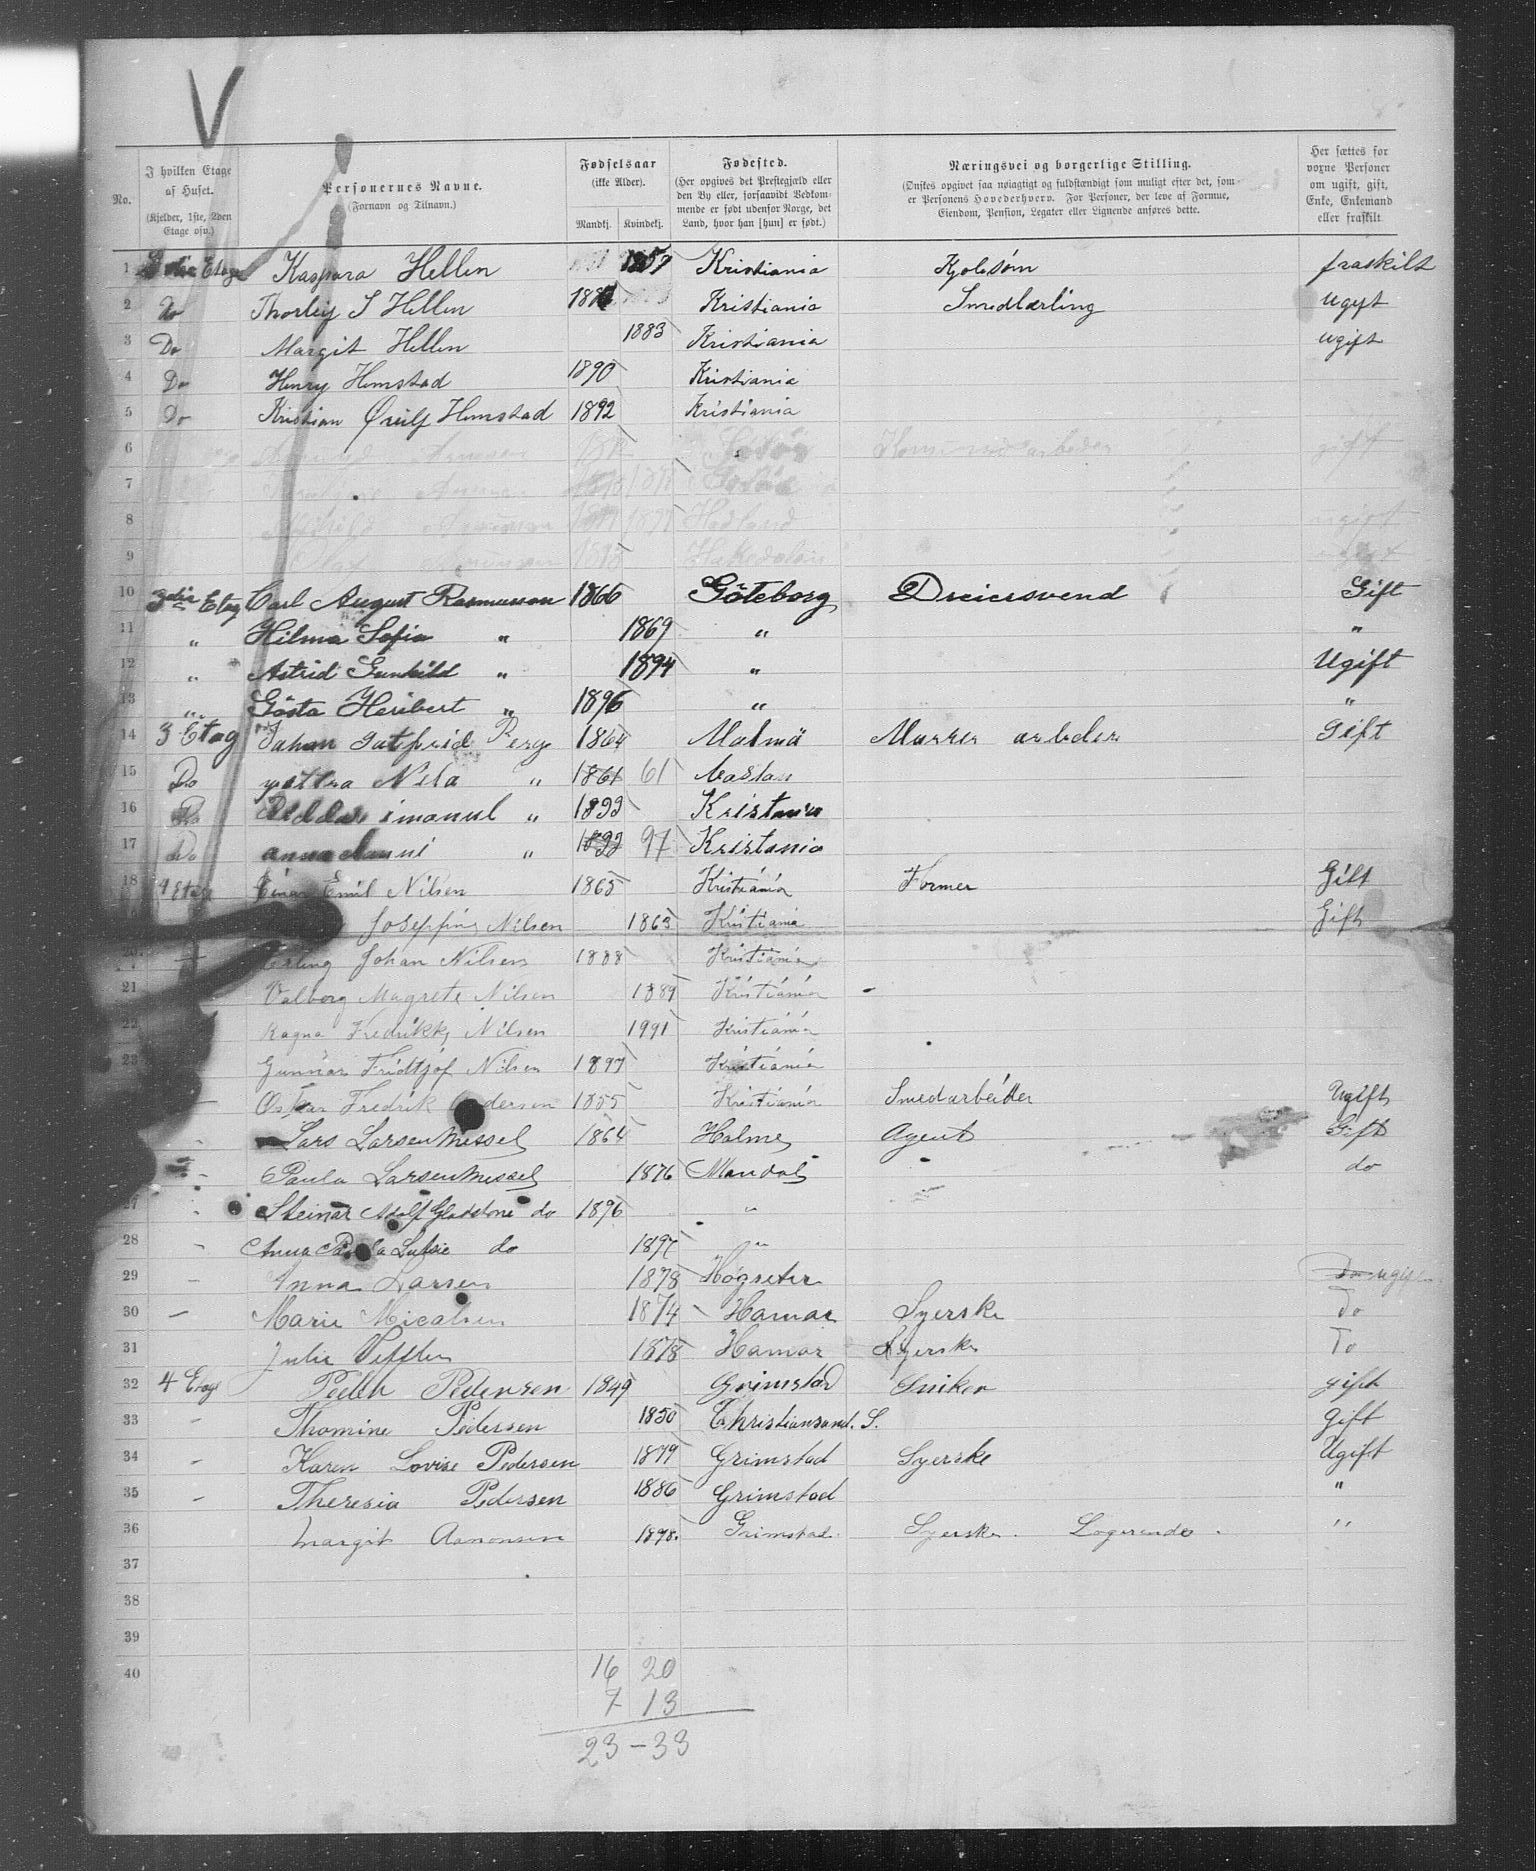 V
No.
I hvilken Etage af Huset. (Kjelder, 1ste, 2den Etage osv.)
Personernes Navne. (Fornavn og Tilnavn.)
Fødselsaar (ikke Alder). Mandkj. Kvindekj.
Fødested. (Her opgives det Prestegjæld eller den By eller, forsaavidt Vedkommende er født udenfor Norge, det Land, hvor han [hun] er født.)
Næringsvei og borgerlige Stilling. (Ønskes opgivet saa nøiagtigt og fuldstændigt som muligt efter det, som er Personens Hovederhverv. For Personer, der leve af Formue, Eiendom, Pension, Legater eller Lignende anføres dette.)
Her sættes for voxne Personer om ugift, gift, Enke, Enkemand eller fraskilt
1 Etage Kaspara Hellen 1857 Kristiania Kjolesøm fraskilt
2 Do Thorleij S Hellen Kristiania Smedlærling ugift
3 Do Margit Hellen 1883 Kristiania ugift
4 Do Henry Hemstad 1890 Kristiania
5 Do Kristian Hemstad 1892 Kristiania
6 gift
7
8 Hadland ugift
9
10 3die Etag Carl August Rasmusson 1866 Göteborg Dreiersvend Gift
11 " Hilma Sofia " 1869 " "
12 " Astrid Gunhild " 1894 " Ugift
13 " Gösta Heribert " 1896 " "
14 3 Etag Johan Gatfrid Berg 1864 Malmö Murrer arbeder Gift
15 Do Nila " 1861 61
16 Do imanuel " 1899 Kristania
17 Do anna " 1899 97 Kristania
18 4 Etag Einar Emil Nilsen 1865 Kristiánia Former Gift
Josephine Nilsen 1863 Kristiania Gift
20 Erling Johan Nilsen 1888 Kristiania
21 Valborg Magrete Nilsen 1889 Kristiánia
22 Ragna Fredrikke Nilsen 1991 Kristiánia
23 Gunnar Fridtjof Nilsen 1897 Kristiánia
— Oskar Fredrik Andersen 1855 Kristiánia Smedarbeider Ugift
- Lars Larsen Messel 1864 Holme Agent Gift
- Paula Larsen Messel 1876 Mandal do
27 - Steinar Adolf Gladstone do 1896 "
28 - Anna Paula Lutsie do 1897 "
29 — Anna Larsen 1878 Høgseter ugift
30 — Marie Micalsen 1874 Hamar Syerske Do
31 Julie 1878 Hamar Syerske Do
32 4 Etage Peder Pedersen 1849 Grimstad Sniker gift
33 - Thomine Pedersen 1850 Christiansand. S. gift
34 - Karen Lovise Pedersen 1879 Grimstad Syerske Ugift
35 - Theresia Pedersen 1886 Grimstad "
36 Margit Aanonsen 1878. Grimstad. Syerske. Logerende. "
37
38
39
40
16 20
7 13
23 - 33